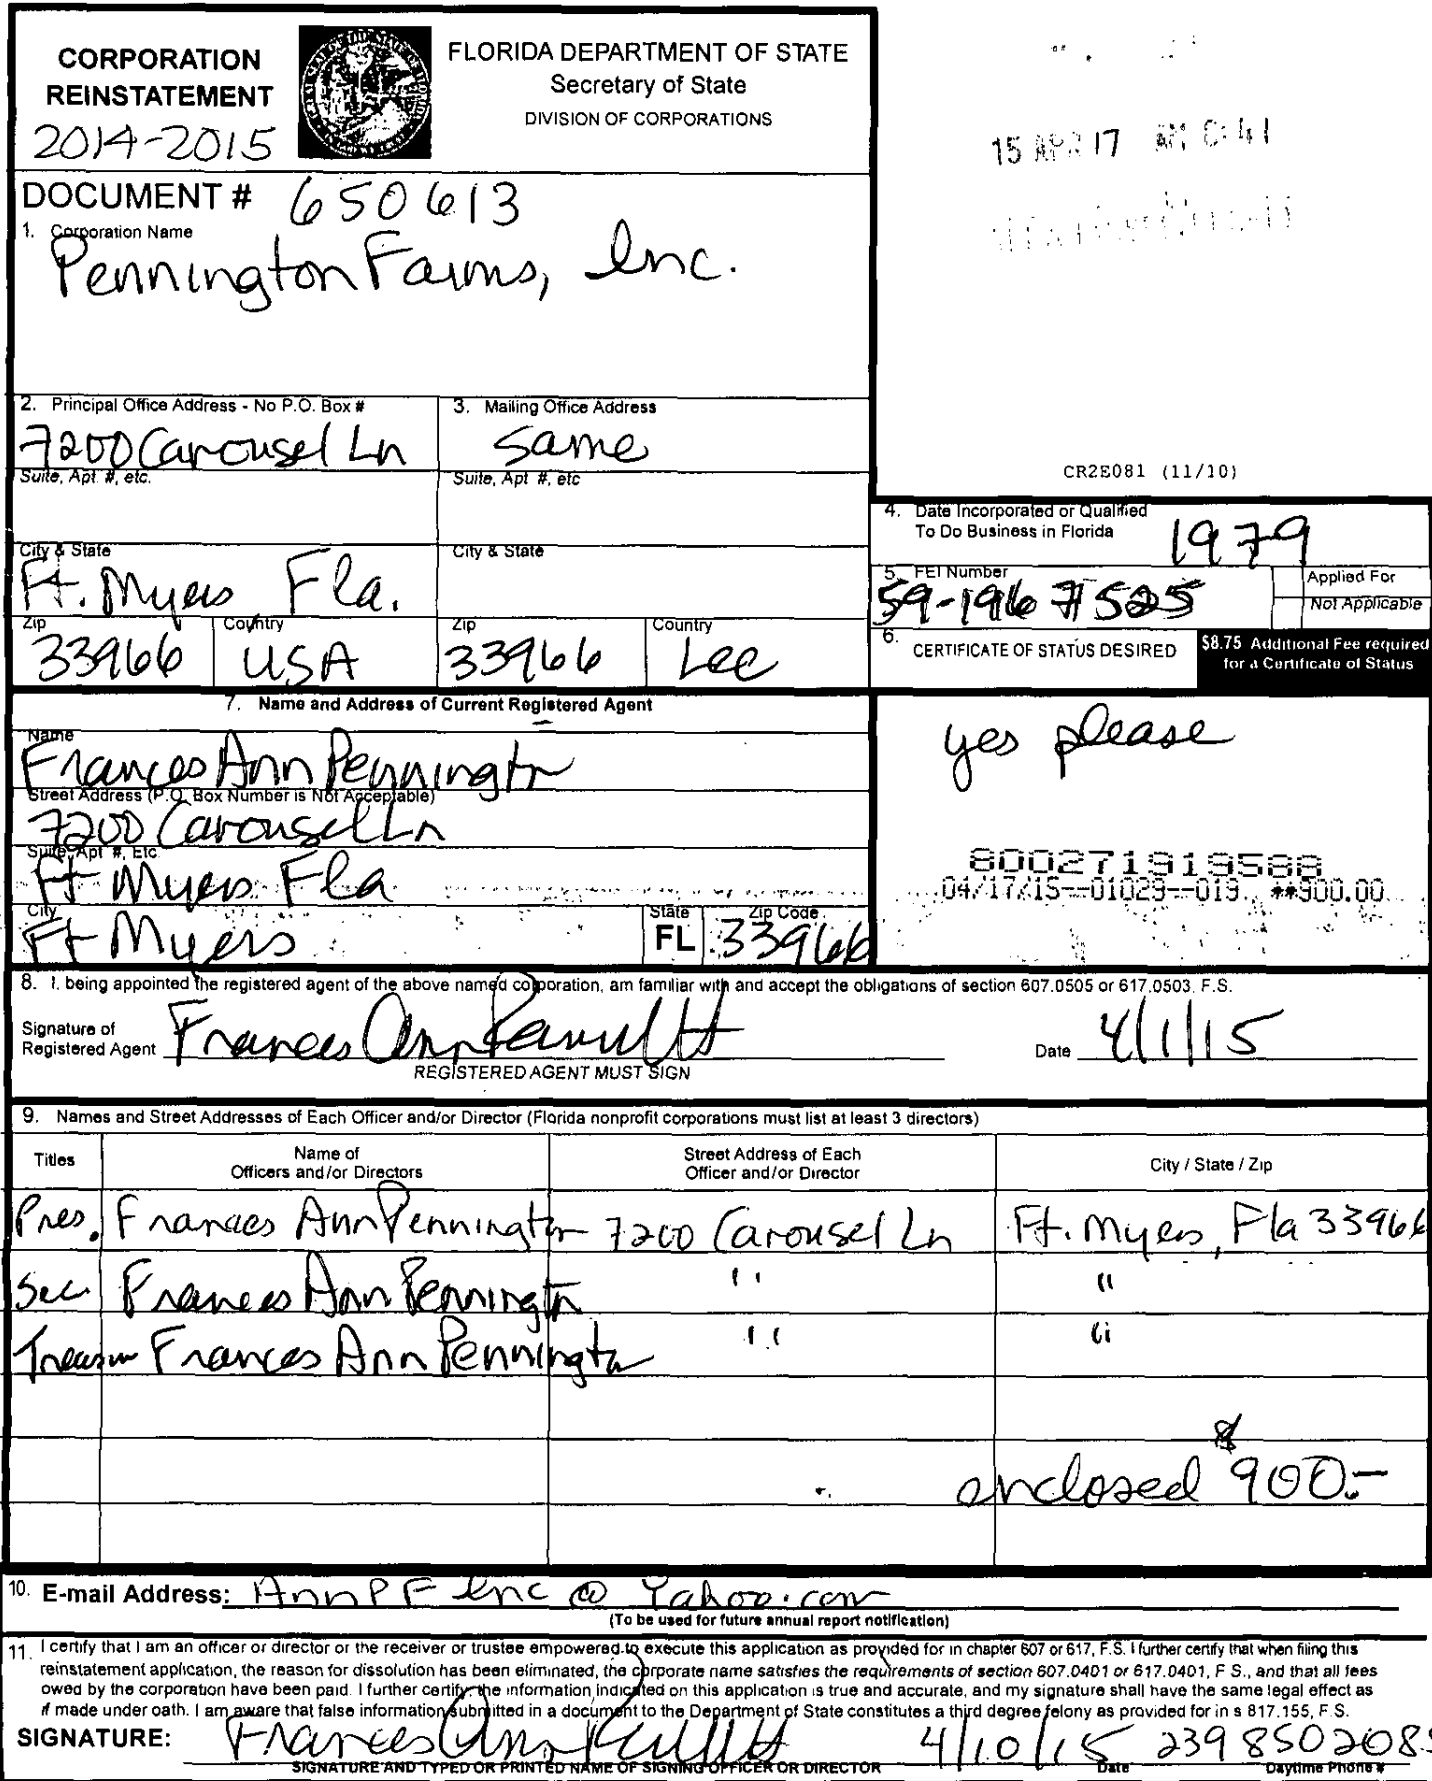 CORPORATION
REINSTATEMENT
2014-2015
FLORIDA DEPARTMENT OF STATE
Secretary of State
DIVISION OF CORPORATIONS
15 APR 17 AM
DOCUMENT # 650613
1. Corporation Name
Pennington Farms, Inc.
2. Principal Office Address - No P.O. Box #
7200 Carousel Ln
3. Mailing Office Address
same
Suite, Apt. #, etc.
Suite, Apt #, etc
CR2E081 (11/10)
City & State
Ft. Myers Fla.
City & State
Zip
33966
Country
USA
Zip
33966
Country
Lee
4. Date Incorporated or Qualified
To Do Business in Florida
1979
5. FEI Number
59-1967525
Applied For
Not Applicable
6. CERTIFICATE OF STATUS DESIRED
$8.75 Additional Fee required
for a Certificate of Status
yes please
7. Name and Address of Current Registered Agent
Name
Frances Ann Pennington
Street Address (P.O. Box Number is Not Acceptable)
7200 Carousel Ln
Suite, Apt #, Etc
Ft Myers Fla
City
Ft Myers
State
FL
Zip Code
33966
800271919588
04/17/15--01029--019 **900.00
8. I, being appointed the registered agent of the above named corporation, am familiar with and accept the obligations of section 607.0505 or 617.0503, F.S.
Signature of
Registered Agent
Frances Ann
Date 4/1/15
REGISTERED AGENT MUST SIGN
9. Names and Street Addresses of Each Officer and/or Director (Florida nonprofit corporations must list at least 3 directors)
Titles
Name of
Officers and/or Directors
Street Address of Each
Officer and/or Director
City / State / Zip
Pres. Frances Ann Pennington 7200 Carousel Ln Ft. Myers, Fla 33966
Sec Frances Ann Pennington " "
Frances Ann Pennington " "
enclosed $900.-
10. E-mail Address: AnnPFInc@Yahoo.com
(To be used for future annual report notification)
11. I certify that I am an officer or director or the receiver or trustee empowered to execute this application as provided for in chapter 607 or 617, F.S. I further certify that when filing this
reinstatement application, the reason for dissolution has been eliminated, the corporate name satisfies the requirements of section 607.0401 or 617.0401, F S., and that all fees
owed by the corporation have been paid. I further certify, the information indicated on this application is true and accurate, and my signature shall have the same legal effect as
if made under oath. I am aware that false information submitted in a document to the Department of State constitutes a third degree felony as provided for in s 817.155, F.S.
SIGNATURE: Frances Ann 4/10/15 239850208
SIGNATURE AND TYPED OR PRINTED NAME OF SIGNING OFFICER OR DIRECTOR Date Daytime Phone #